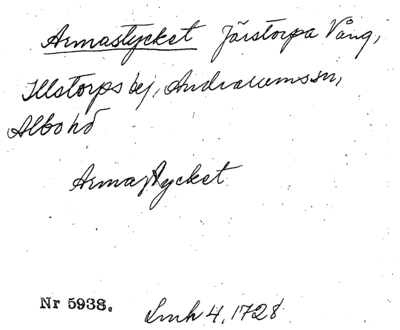 Armastycket Järstorpa Vång,
Illstorps bj, Andrarumssn,
Albo hd
Armastycket
Nr 5938. Lmh 4, 1728